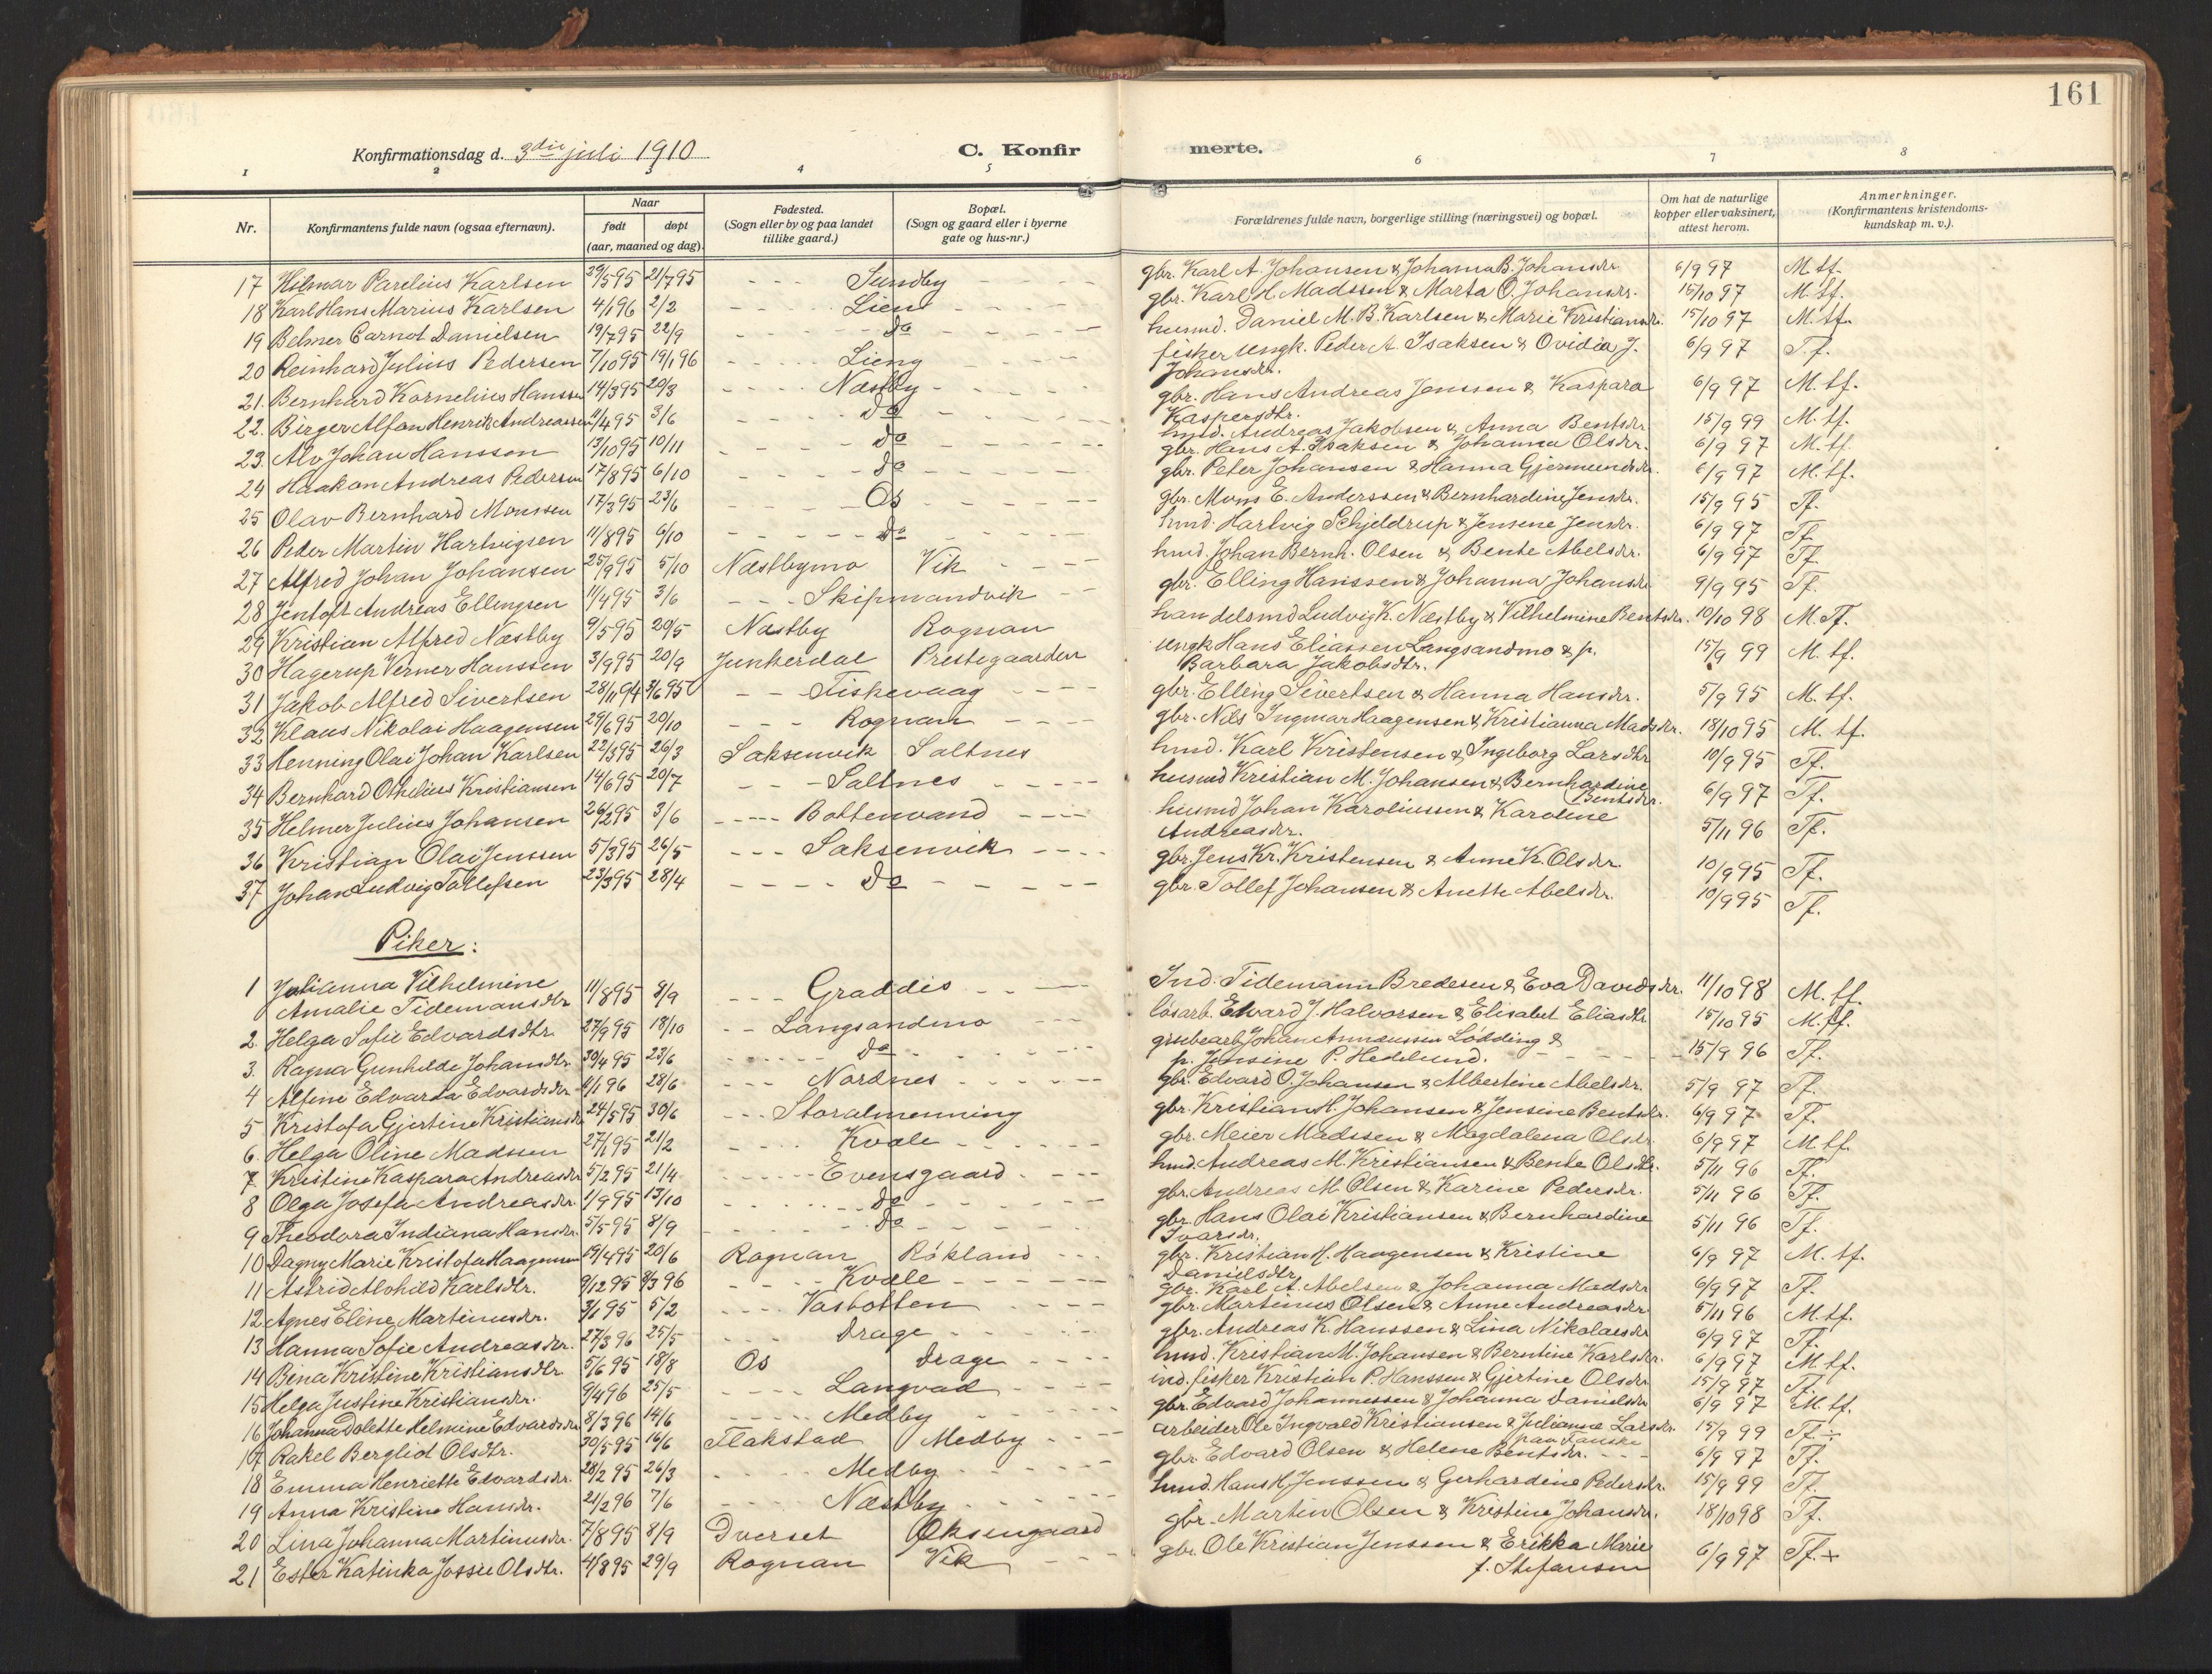 161
Konfirmationsdag d. 3die juli 1910
C. Konfir merte.
1 2 3 4 5 6 7 8
Nr. Konfirmantens fulde navn (ogsaa efternavn). Naar født døpt (aar, maaned og dag). Fødested. (Sogn eller by og paa landet tillike gaard.) Bopæl. (Sogn og gaard eller i byerne gate og hus-nr.) Forældrenes fulde navn, borgerlige stilling (næringsvei) og bopæl. Om hat de naturlige kopper eller vaksinert, attest herom. Anmerkninger. (Konfirmantens kristendoms-kundskap m. v.).
17 Hilmar Parelius Karlsen 29/5 95 21/7 95 - - - Sundby - - - gbr. Karl A. Johansen & Johanna B. Johansdr. 6/9 97 M. tf.
18 Karl Hans Marius Karlsen 4/1 96 2/2 - - - Lien - - - gbr. Karl H. Madssen & Marta O. Johansdr. 15/10 97 M. tf.
19 Belmer Carnot Danielsen 19/7 95 22/9 - - - Do - - - husmd. Daniel M. B. Karlsen & Marie Kristiansdr. 15/10 97 M. tf.
20 Reinhard Julius Pedersen 7/10 95 19/1 96 - - - Lieng - - - fisker ungk. Peder A. Isaksen & Ovidia J. Johansdr. 6/9 97 T. f.
21. Bernhard Kornelius Hanssen 14/3 95 20/3 - - - Næstby - - - gbr. Hans Andreas Jenssen & Kaspara Kaspersdtr. 6/9 97 M. tf.
22. Birger Alfon Henrik Andreassen 11/4 95 3/6 - - - Do - - - hmd. Andreas Jakobsen & Anna Bentsdr. 15/9 99 M. tf.
23. Alv Johan Hanssen 13/10 95 10/11 - - - Do - - - gbr. Hans A. Isaksen & Johanna Olsdr. 6/9 97 M. tf.
24 Haakon Andreas Pedersen 17/8 95 6/10 - - - Do - - - gbr. Peter Johansen & Hanna Gjermundsdr. 6/9 97 M. tf.
25 Olav Bernhard Monssen 17/3 95 23/6 - - - Os - - - gbr. Mons E. Anderssen & Bernhardine Jensdr. 15/9 95 Tf.
26 Peder Martin Hartvigsen 11/8 95 6/10 - - - Do - - - hmd. Hartvig Schjeldrup & Jensene Jensdr. 6/9 97 Tf.
27 Alfred Johan Johansen 25/9 95 5/10 Næstbymo Vik - - - hmd. Johan Bernh. Olsen & Bente Abelsdr. 6/9 97 Tf.
28 Jentoft Andreas Ellingsen 11/4 95 3/6 - - - Skipmandvik - - gbr. Elling Hanssen & Johanna Johansdr. 9/9 95 Tf.
29 Kristian Alfred Næstby 9/5 95 20/5 Næstby Rognan handelsmd Ludvig K. Næstby & Vilhelmine Bentsdr. 10/10 98 M. Tf.
30 Hagerup Verner Hanssen 3/9 95 20/9 Junkerdal Prestegaarden ungk Hans Eliassen Langsandmo & p. Barbara Jakobsdtr. 15/9 99 M. tf.
31 Jakob Alfred Sivertsen 28/11 94 3/6 95 - - Fiskevaag - - - gbr. Elling Sivertsen & Hanna Hansdr. 5/9 95 M. tf.
32 Klaus Nikolai Haagensen 29/6 95 20/10 - - - Rognan - - - gbr. Nils Ingmar Haagensen & Kristianna Madsdr. 18/10 95 M. tf.
33 Henning Olai Johan Karlsen 22/3 95 26/3 Saksenvik Saltnes hmd. Karl Kristensen & Ingeborg Larsdtr 10/9 95 Tf.
34 Bernhard Othelius Kristiansen 14/6 95 20/7 - - - Saltnes - - - husmd Kristian M. Johansen & Bernhardine Bentsdr. 6/9 97 Tf.
35 Helmer Julius Johansen 26/2 95 3/6 - - - Bottenvand - - - husmd Johan Karoliussen & Karoline Andreasdr. 5/11 96 Tf.
36 Kristian Olai Jenssen 5/3 95 26/5 - - - Saksenvik - - - gbr. Jens Kr. Kristensen & Anne K. Olsdr. 10/9 95 Tf.
37 Johan Ludvig Tollefsen 23/3 95 28/4 - - - Do - - - gbr. Tollef Johansen & Anette Abelsdr. 10/9 95 Tf.
Piker:
1 Julianna Vilhelmine Amalie Tidemansdtr 11/8 95 8/9 - - - Graddis - - - Ind. Tidemann Bredesen & Eva Davidsdr. 11/10 98 M. tf.
2. Helga Sofie Edvardsdtr. 27/9 95 18/10 - - Langsandmo - - - løsarb. Edvard J. Halvorsen & Elisabet Eliasdtr 15/10 95 M. tf.
3. Ragna Gunhilde Johansdtr 30/4 95 23/6 - - - Do - - - grubearb Johan Annæussen Lødding & p. Jensine P. Hedelund. - - - 15/9 96 Tf.
4 Alfine Edvarda Edvardsdr. 4/1 96 28/6 - - - Nordnes - - - gbr. Edvard O. Johansen & Albertine Abelsdr. 5/9 97 Tf.
5 Kristofa Gjertine Kristiansdr 24/5 95 30/6 - - - Storalmenning gbr. Kristian H. Johansen & Jensine Bentsdr. 6/9 97 Tf.
6. Helga Oline Madssen 27/1 95 21/2 - - - Kvale - - - gbr. Meier Madssen & Magdalena Olsdr. 6/9 97 M. tf.
7 Kristine Kaspara Andreasdr 5/2 95 21/4 - - - Evensgaard - - - hmd. Andreas M. Kristiansen & Bente Olsdtr. 5/11 96 Tf.
8 Olga Josefa Andreasdr. 1/9 95 13/10 - - - Do - - - gbr. Andreas M. Olsen & Karine Pedersdr. 5/11 96 Tf.
9 Theodora Indiana Hansdr. 5/5 95 8/9 - - - Do - - - gbr. Hans Olai Kristiansen & Bernhardine Ivarsdr. 5/11 96 Tf.
10 Dagny Marie Kristofa Haagensen 19/4 95 20/6 Rognan Røkland - - - gbr. Kristian H. Haagensen & Kristine Danielsdtr 6/9 97 M. tf.
11 Astrid Alvhild Karlsdtr. 9/12 95 8/3 96 - - - Kvale - - - gbr. Karl A. Abelsen & Johanna Madsdr 6/9 97 Tf.
12 Agnes Eline Martinusdr. 3/1 95 5/2 - - - Vasbotten - - - gbr. Martinus Olsen & Anne Andreasdr. 5/11 96 M. tf.
13 Hanna Sofie Andreasdr. 27/3 96 25/5 - - - Drage - - - gbr. Andreas K. Hanssen & Lina Nikolaisdr 6/9 97 Tf.
14 Bina Kristine Kristiansdtr 5/6 95 18/8 Os Drage - - - hmd. Kristian M. Johansen & Berntine Karlsdr. 6/9 97 M. tf.
15 Helga Justine Kristiansdr. 9/4 96 25/5 - - - Langvad - - - ind. fisker Kristian P. Hanssen & Gjertine Olsdr. 15/9 97 Tf.
16 Johanna Dolette Helmine Edvardsdr 8/3 96 14/6 - - - Medby - - - gbr. Edvard Johannessen & Johanna Danielsdr 6/9 97 M. tf.
17 Rakel Bergliot Olsdtr. 20/5 95 16/6 Flakstad Medby - - - arbeider Ole Ingvald Kristiansen & Julianne Larsdr. paa Fauske 15/9 99 Tf. ÷
18 Emma Henriette Edvardsdr. 28/2 95 26/3 - - - Medby - - - gbr. Edvard Olsen & Helene Bentsdr. - - - 6/9 97 Tf.
19 Anna Kristine Hansdr. 21/2 96 7/6 - - - Næstby - - - hmd. Hans H. Jenssen & Gerhardine Pedersdr. 15/9 99 Tf.
20 Lina Johanna Martinusdr. 7/8 95 8/9 Dverset Øksengaard gbr. Martin Olsen & Kristine Johansdr. 18/10 98 Tf.
21 Ester Katinka Jossie Olsdtr. 4/8 95 29/9 Rognan Vik - - - gbr. Ole Kristian Jenssen & Erikka Marie f. Stefansen 6/9 97 Tf. +